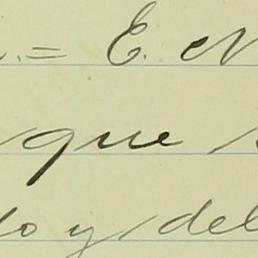 .= E. N
que
do y del